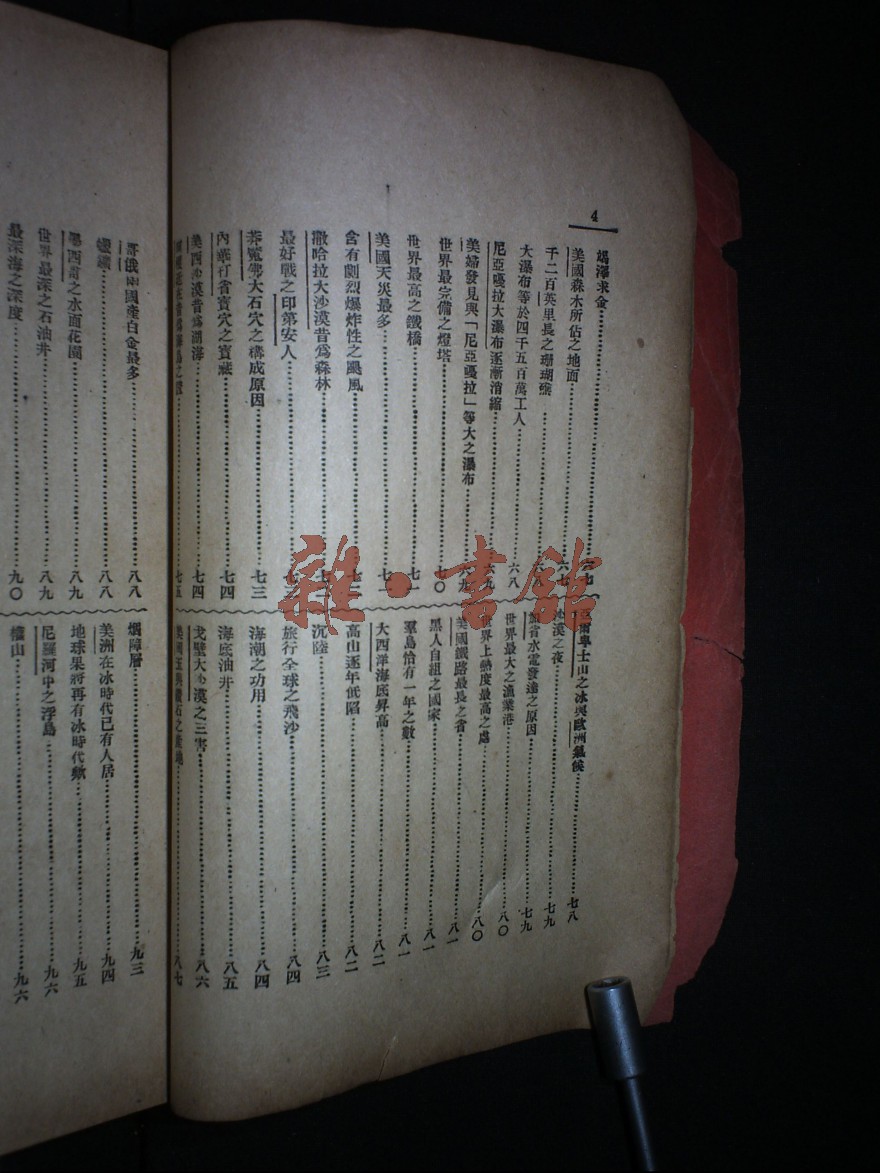 4
竭澤求金……六七
美國森木所佔之地面……六七
千二百英里長之珊瑚礁……六八
大瀑布等於四千五百萬工人……六八
尼亞嘎拉大瀑布逐漸消縮……六九
美婦發見與「尼亞嘎拉」等大之瀑布……六九
世界最完備之燈塔……七〇
世界最高之鐵橋……七一
美國天災最多……七一
含有劇烈爆炸性之颶風……七二
撒哈拉大沙漠昔爲森林……七二
最好戰之印第安人……七三
莽魔佛大石穴之構成原因……七三
內華打省寶穴之寶藏……七四
美西沙漠昔爲湖海……七四
七五
爾學士山之冰與歐洲氣候……七八
沙漠之夜……七九
加省水電發達之原因……七九
世界最大之漁業港……八〇
世界上熱度最高之處……八〇
美國鐵路最長之省……八一
黑人自組之國家……八一
羣島恰有一年之數……八一
大西洋海底昇高……八二
高山逐年低陷……八二
沉陸……八三
旅行全球之飛沙……八四
海潮之功用……八四
海底油井……八五
戈壁大沙漠之三害……八六
八七
哥俄兩國產白金最多……八八
八八
墨西哥之水面花園……八九
世界最深之石油井……八九
最深海之深度……九〇
烟障層……九三
美洲在冰時代已有人居……九四
地球果將再有冰時代歟……九五
尼羅河中之浮島……九六
檀山……九六
雜·書館